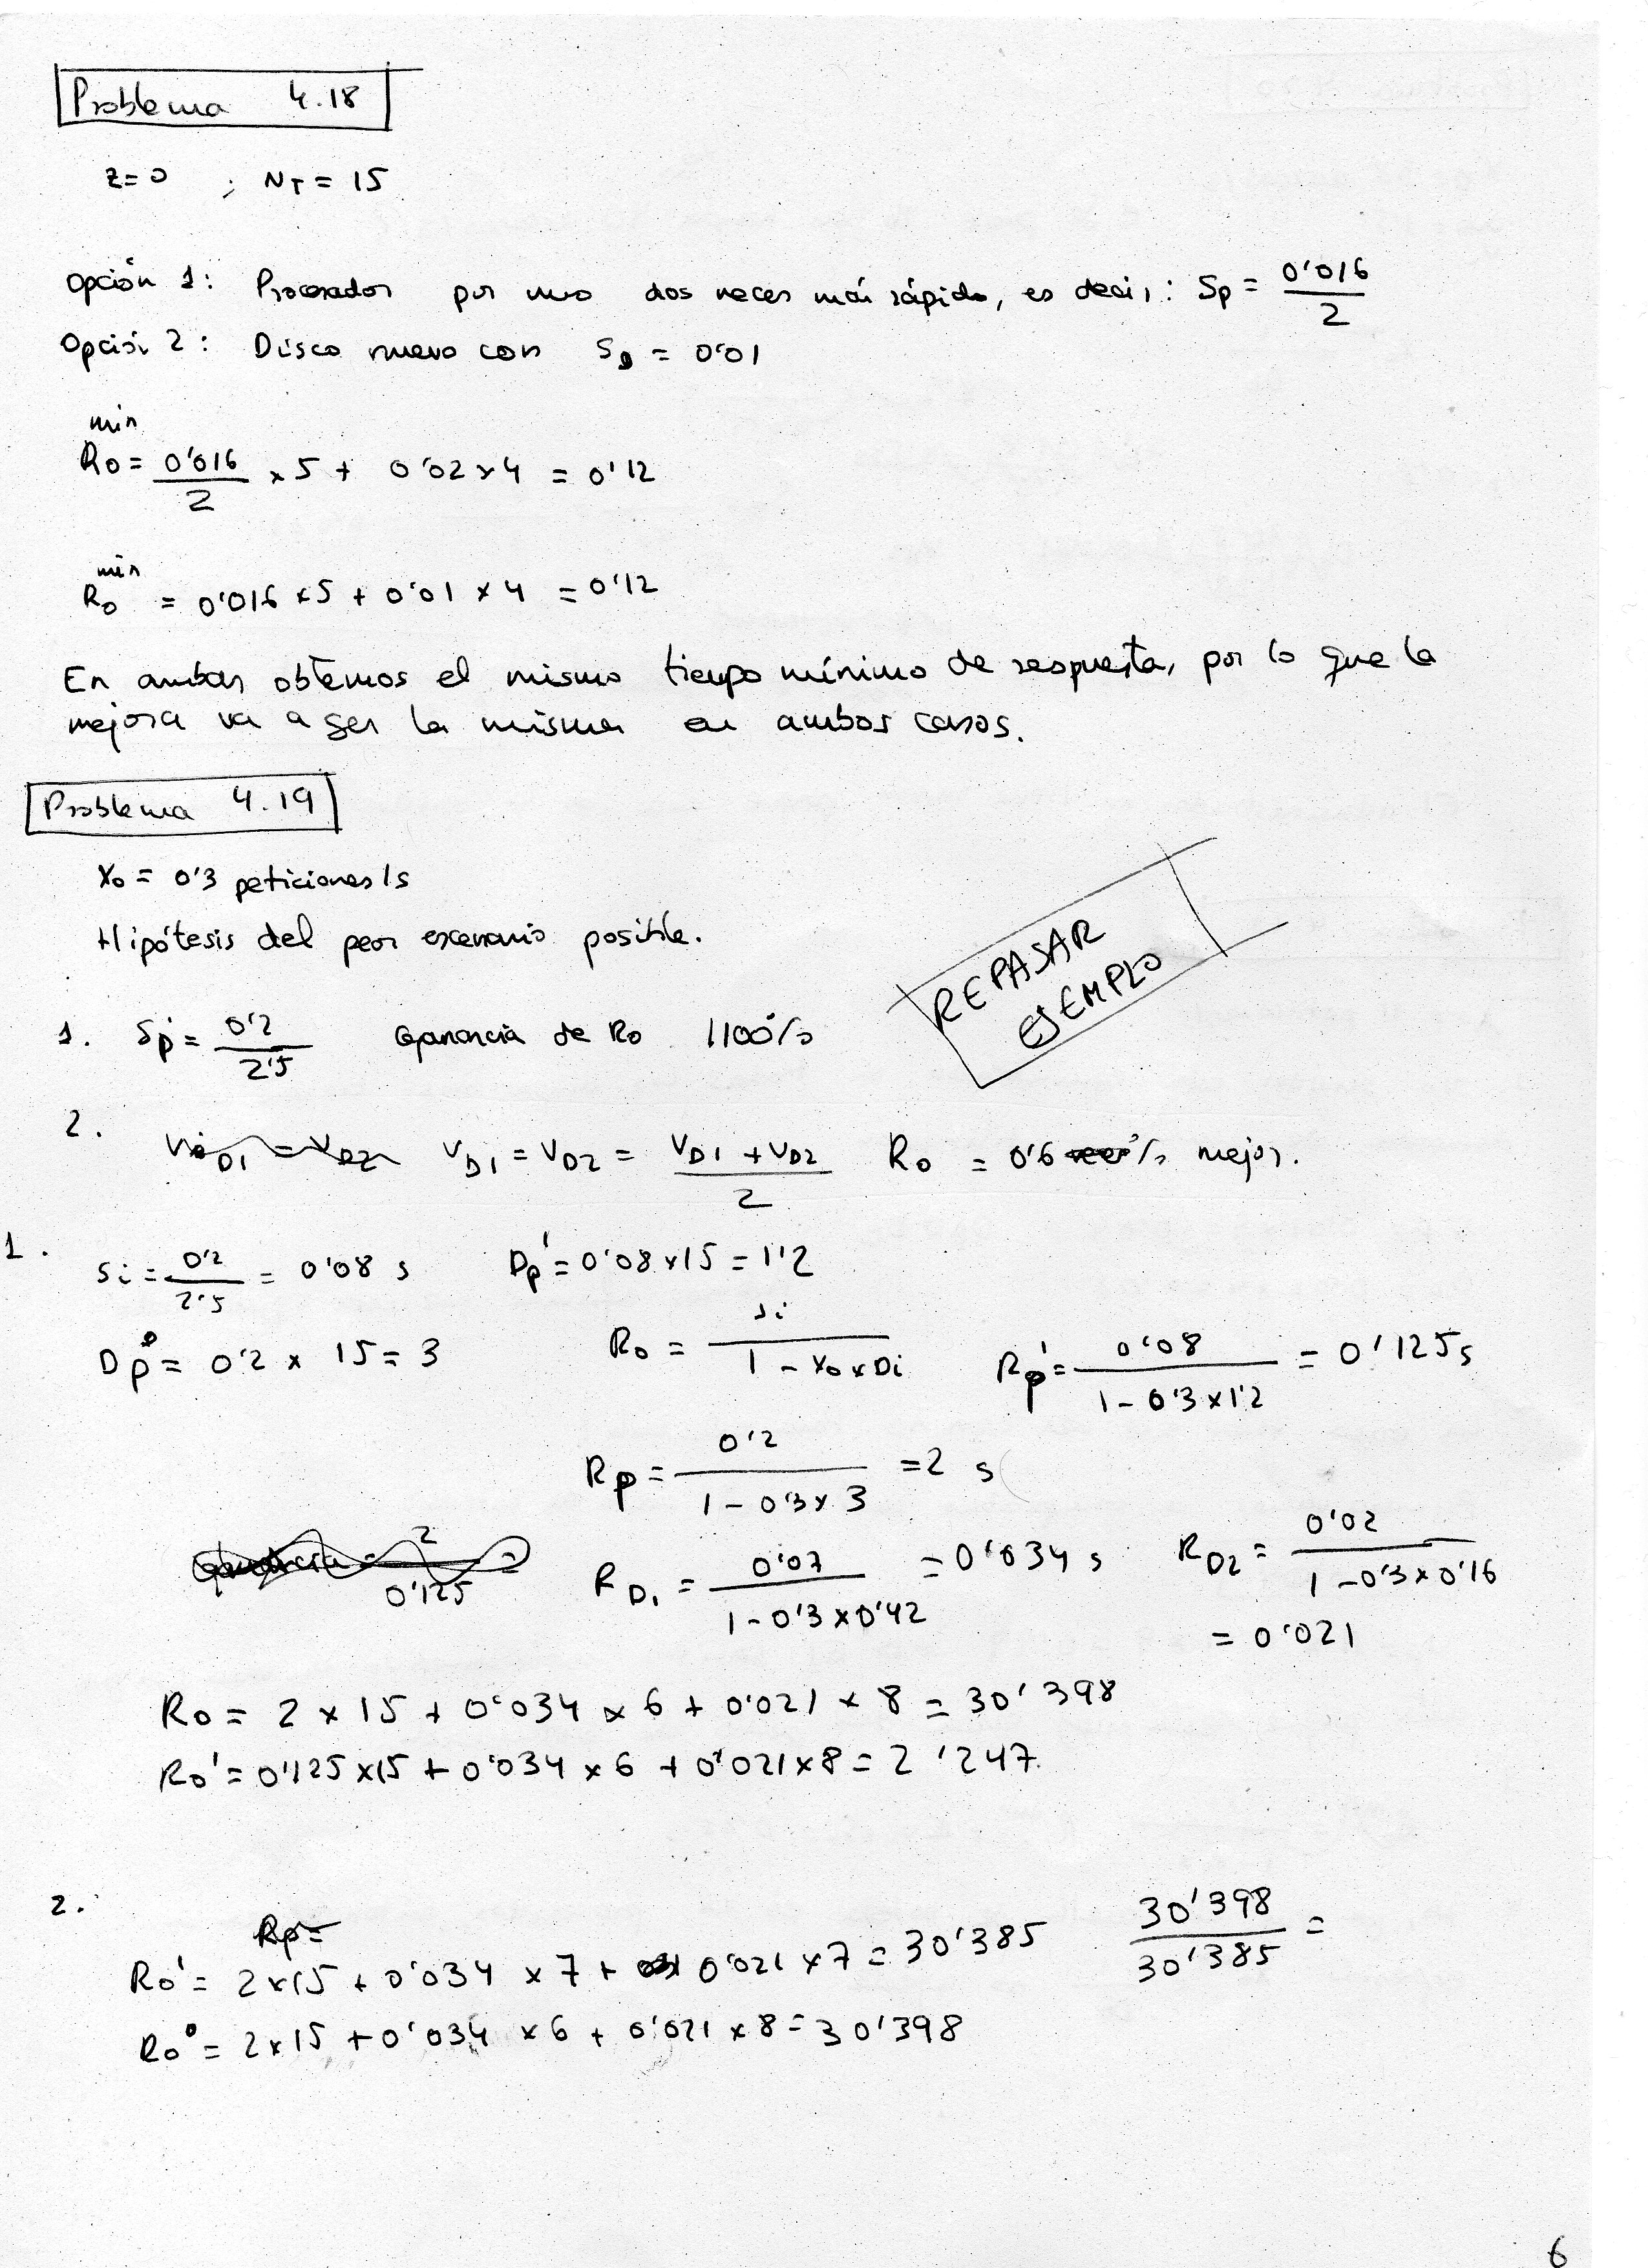 Problema 4.18
z=0 ; NT = 15
Opción 1: Procesador por uno dos veces más rápido, es decir: Sp = 0'016 / 2
Opción 2: Disco nuevo con SD = 0'01
min
Ro = 0'016 / 2 x 5 + 0'02 x 4 = 0'12
min
Ro = 0'016 x 5 + 0'01 x 4 = 0'12
En ambas obtemos el mismo tiempo mínimo de respuesta, por lo que la
mejora va a ser la misma en ambos casos.
Problema 4.19
Xo = 0'3 peticiones/s
Hipótesis del peor escenario posible.
REPASAR
EJEMPLO
1. Sp' = 0'2 / 2'5 Ganancia de Ro 1100%
2. VD1 = VD2 = VD1 + VD2 / 2 Ro = 0'6 % mejor.
1.
Si = 0'2 / 2'5 = 0'08 s Dp' = 0'08 x 15 = 1'2
Dp = 0'2 x 15 = 3 Ro = Si / 1 - Xo x Di Rp' = 0'08 / 1 - 0'3 x 1'2 = 0'125 s
Rp = 0'2 / 1 - 0'3 x 3 = 2 s
2 / 0'125 = RD1 = 0'07 / 1 - 0'3 x 0'42 = 0'034 s RD2 = 0'02 / 1 - 0'3 x 0'16
= 0'021
Ro = 2 x 15 + 0'034 x 6 + 0'021 x 8 = 30'398
Ro' = 0'125 x 15 + 0'034 x 6 + 0'021 x 8 = 2'247
2.
Rp =
Ro' = 2 x 15 + 0'034 x 7 + 0'021 x 7 = 30'385 30'398 / 30'385 =
Ro° = 2 x 15 + 0'034 x 6 + 0'021 x 8 = 30'398
6